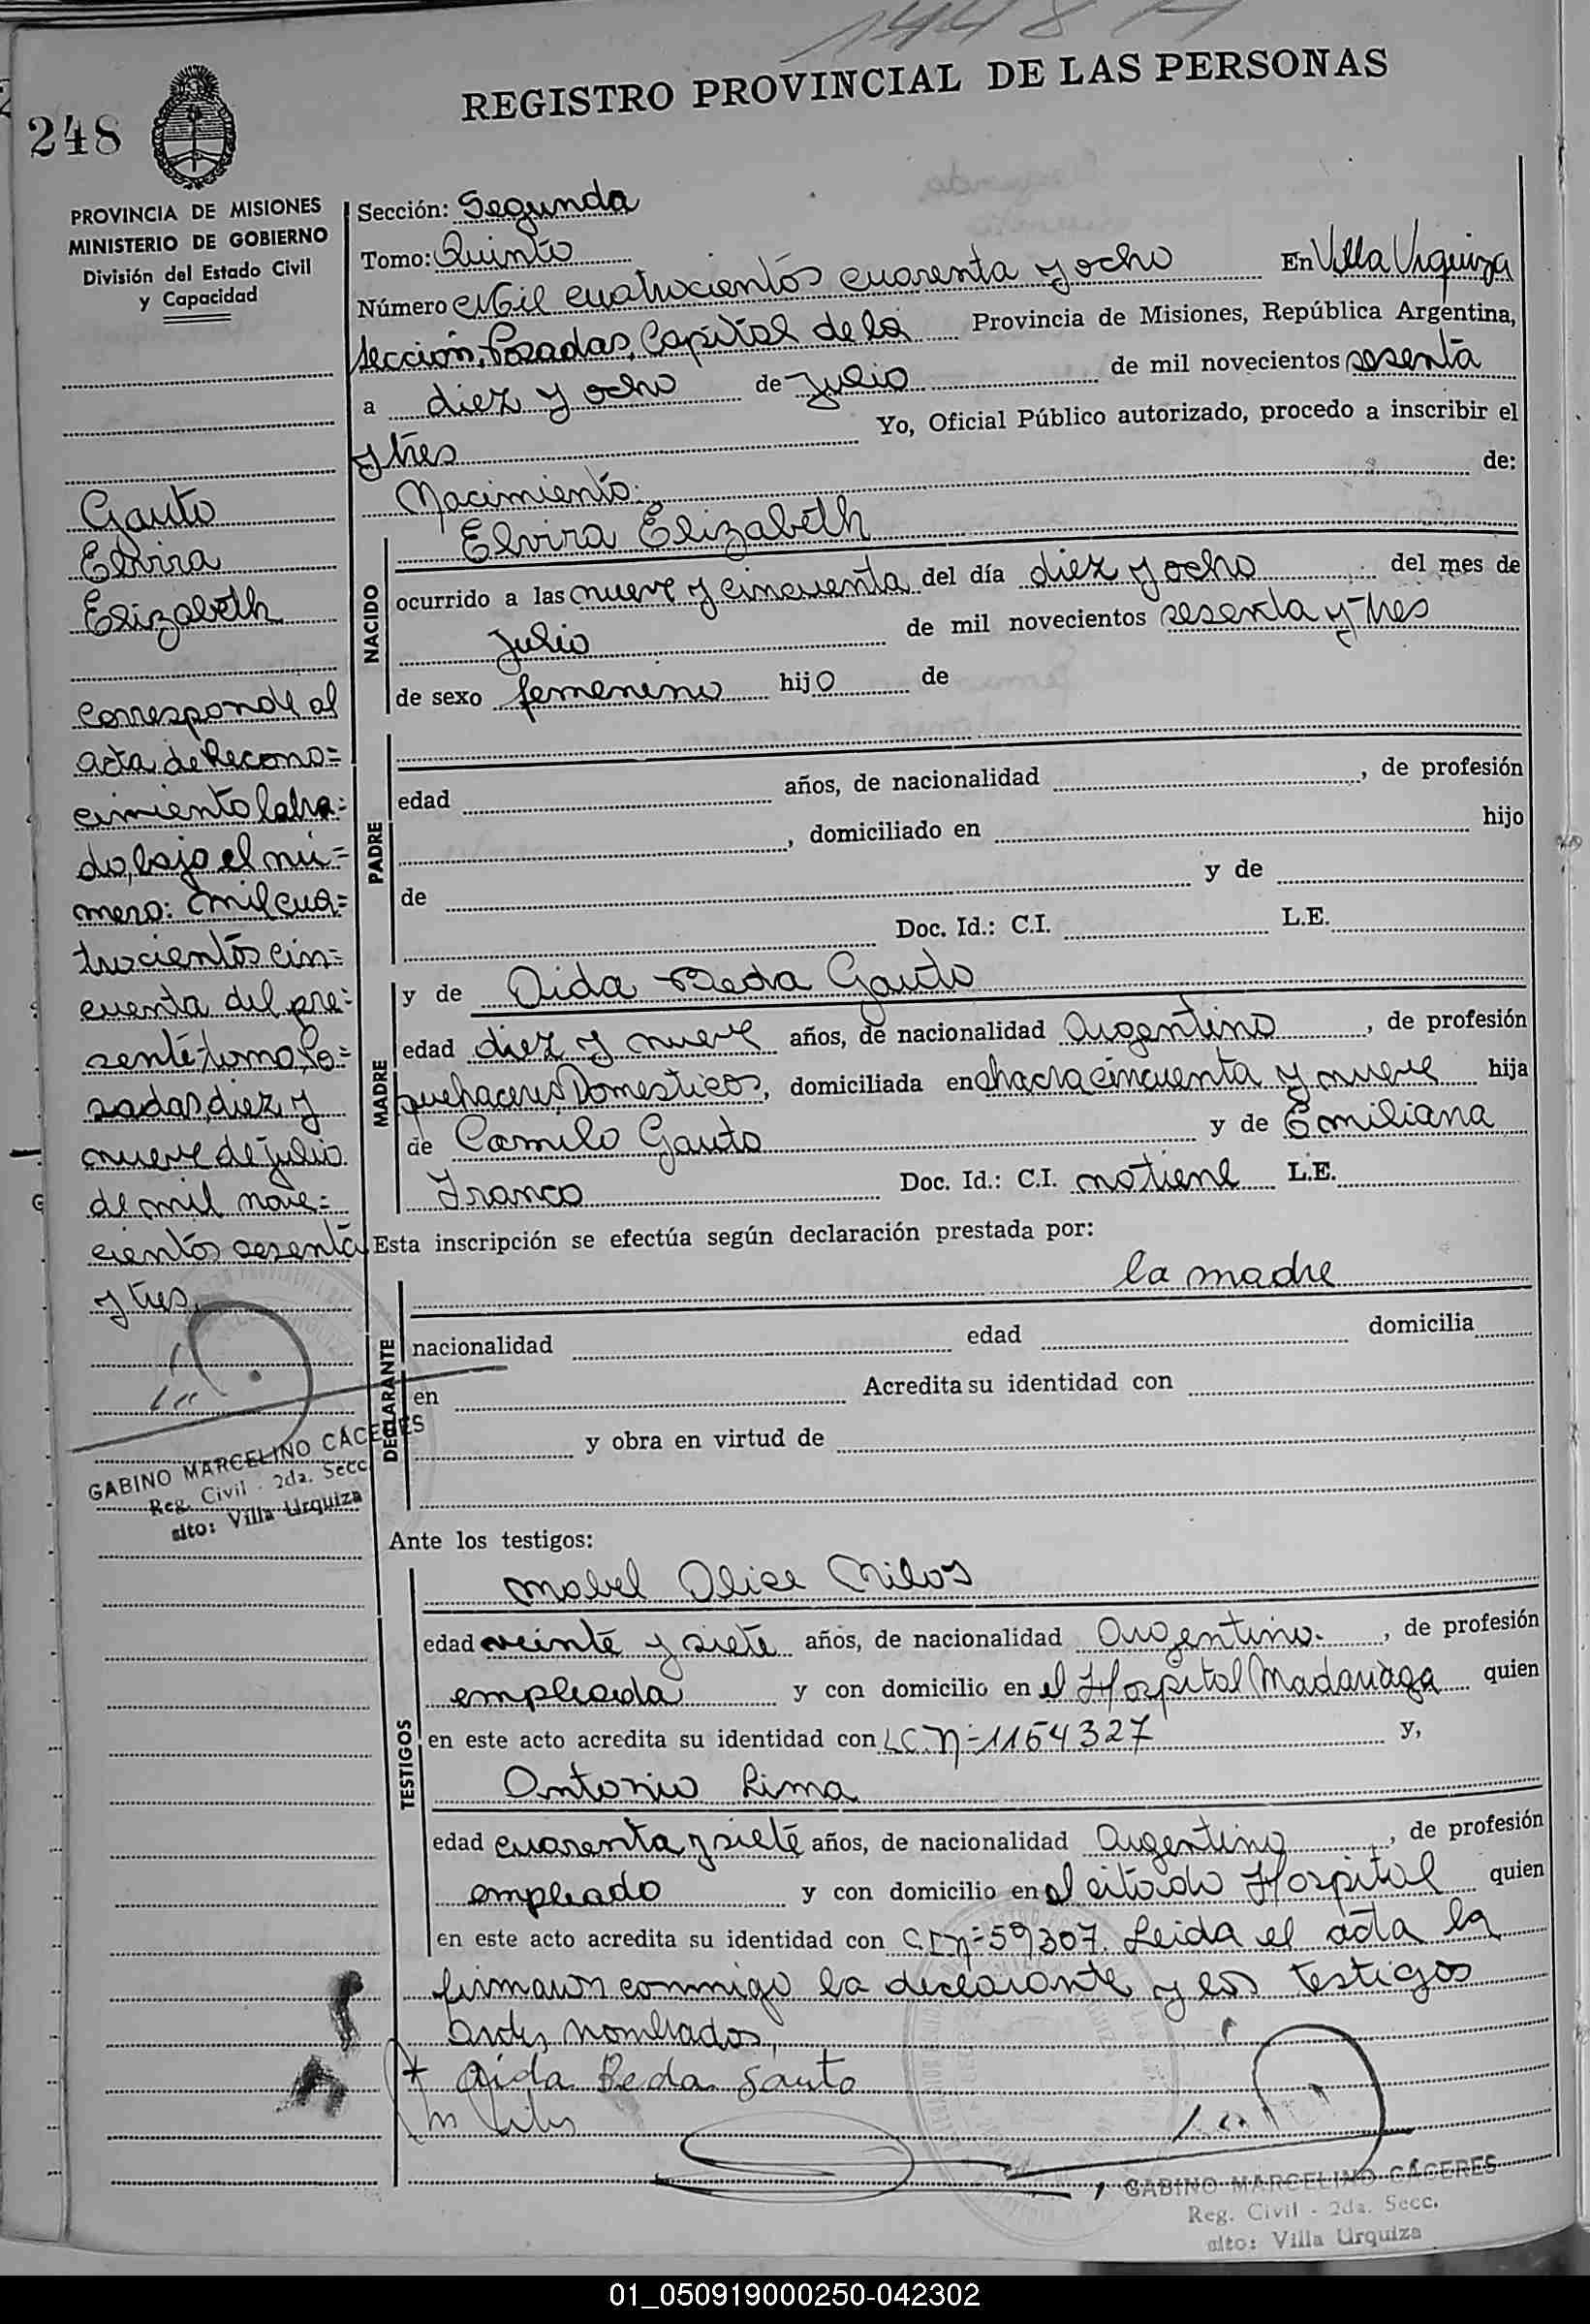 1448 H
REGISTRO PROVINCIAL DE LAS PERSONAS
248
PROVINCIA DE MISIONES
MINISTERIO DE GOBIERNO
División del Estado Civil
y Capacidad
Gauto
Elvira
Elizabeth
corresponde al
acta de Recono=
cimiento labra=
do, bajo el nú=
mero: mil cua=
trocientos cin=
cuenta del pre=
sente tomo, Po=
sadas, diez y
nueve de julio
de mil nove=
cientos sesenta
y tres.
GABINO MARCELINO CÁCERES
Reg. Civil - 2da. Secc
alto: Villa Urquiza
Sección: Segunda
Tomo: Quinto
Número Mil cuatrocientos cuarenta y ocho En Villa Urquiza
sección, Posadas, Capital de la Provincia de Misiones, República Argentina,
a diez y ocho de julio de mil novecientos sesenta
y tres Yo, Oficial Público autorizado, procedo a inscribir el
Nacimiento. de:
NACIDO
Elvira Elizabeth
ocurrido a las nueve y cincuenta del día diez y ocho del mes de
julio de mil novecientos sesenta y tres
de sexo femenino hijo de
PADRE
edad años, de nacionalidad , de profesión
, domiciliado en hijo
de y de
Doc. Id.: C.I. L.E.
MADRE
y de Aida Beda Gauto
edad diez y nueve años, de nacionalidad Argentina , de profesión
quehaceres Domesticos, domiciliada en chacra cincuenta y nueve hija
de Camilo Gauto y de Emiliana
Franco Doc. Id.: C.I. no tiene L.E.
Esta inscripción se efectúa según declaración prestada por:
DECLARANTE
la madre
nacionalidad edad domicilia
en Acredita su identidad con
y obra en virtud de
Ante los testigos:
TESTIGOS
Mabel Alice Milos
edad veinte y siete años, de nacionalidad Argentina. , de profesión
empleada y con domicilio en el Hospital Madariaga quien
en este acto acredita su identidad con L.C. Nº 1164327 y,
Antonio Lima
edad cuarenta y siete años, de nacionalidad Argentino , de profesión
empleado y con domicilio en el citado Hospital quien
en este acto acredita su identidad con C.I. Nº 59307. Leida el acta la
firmaron conmigo la declarante y los testigos
antes nombrados.
Aida Beda Gauto
GABINO MARCELINO CÁCERES
Reg. Civil - 2da. Secc.
alto: Villa Urquiza
01_050919000250-042302